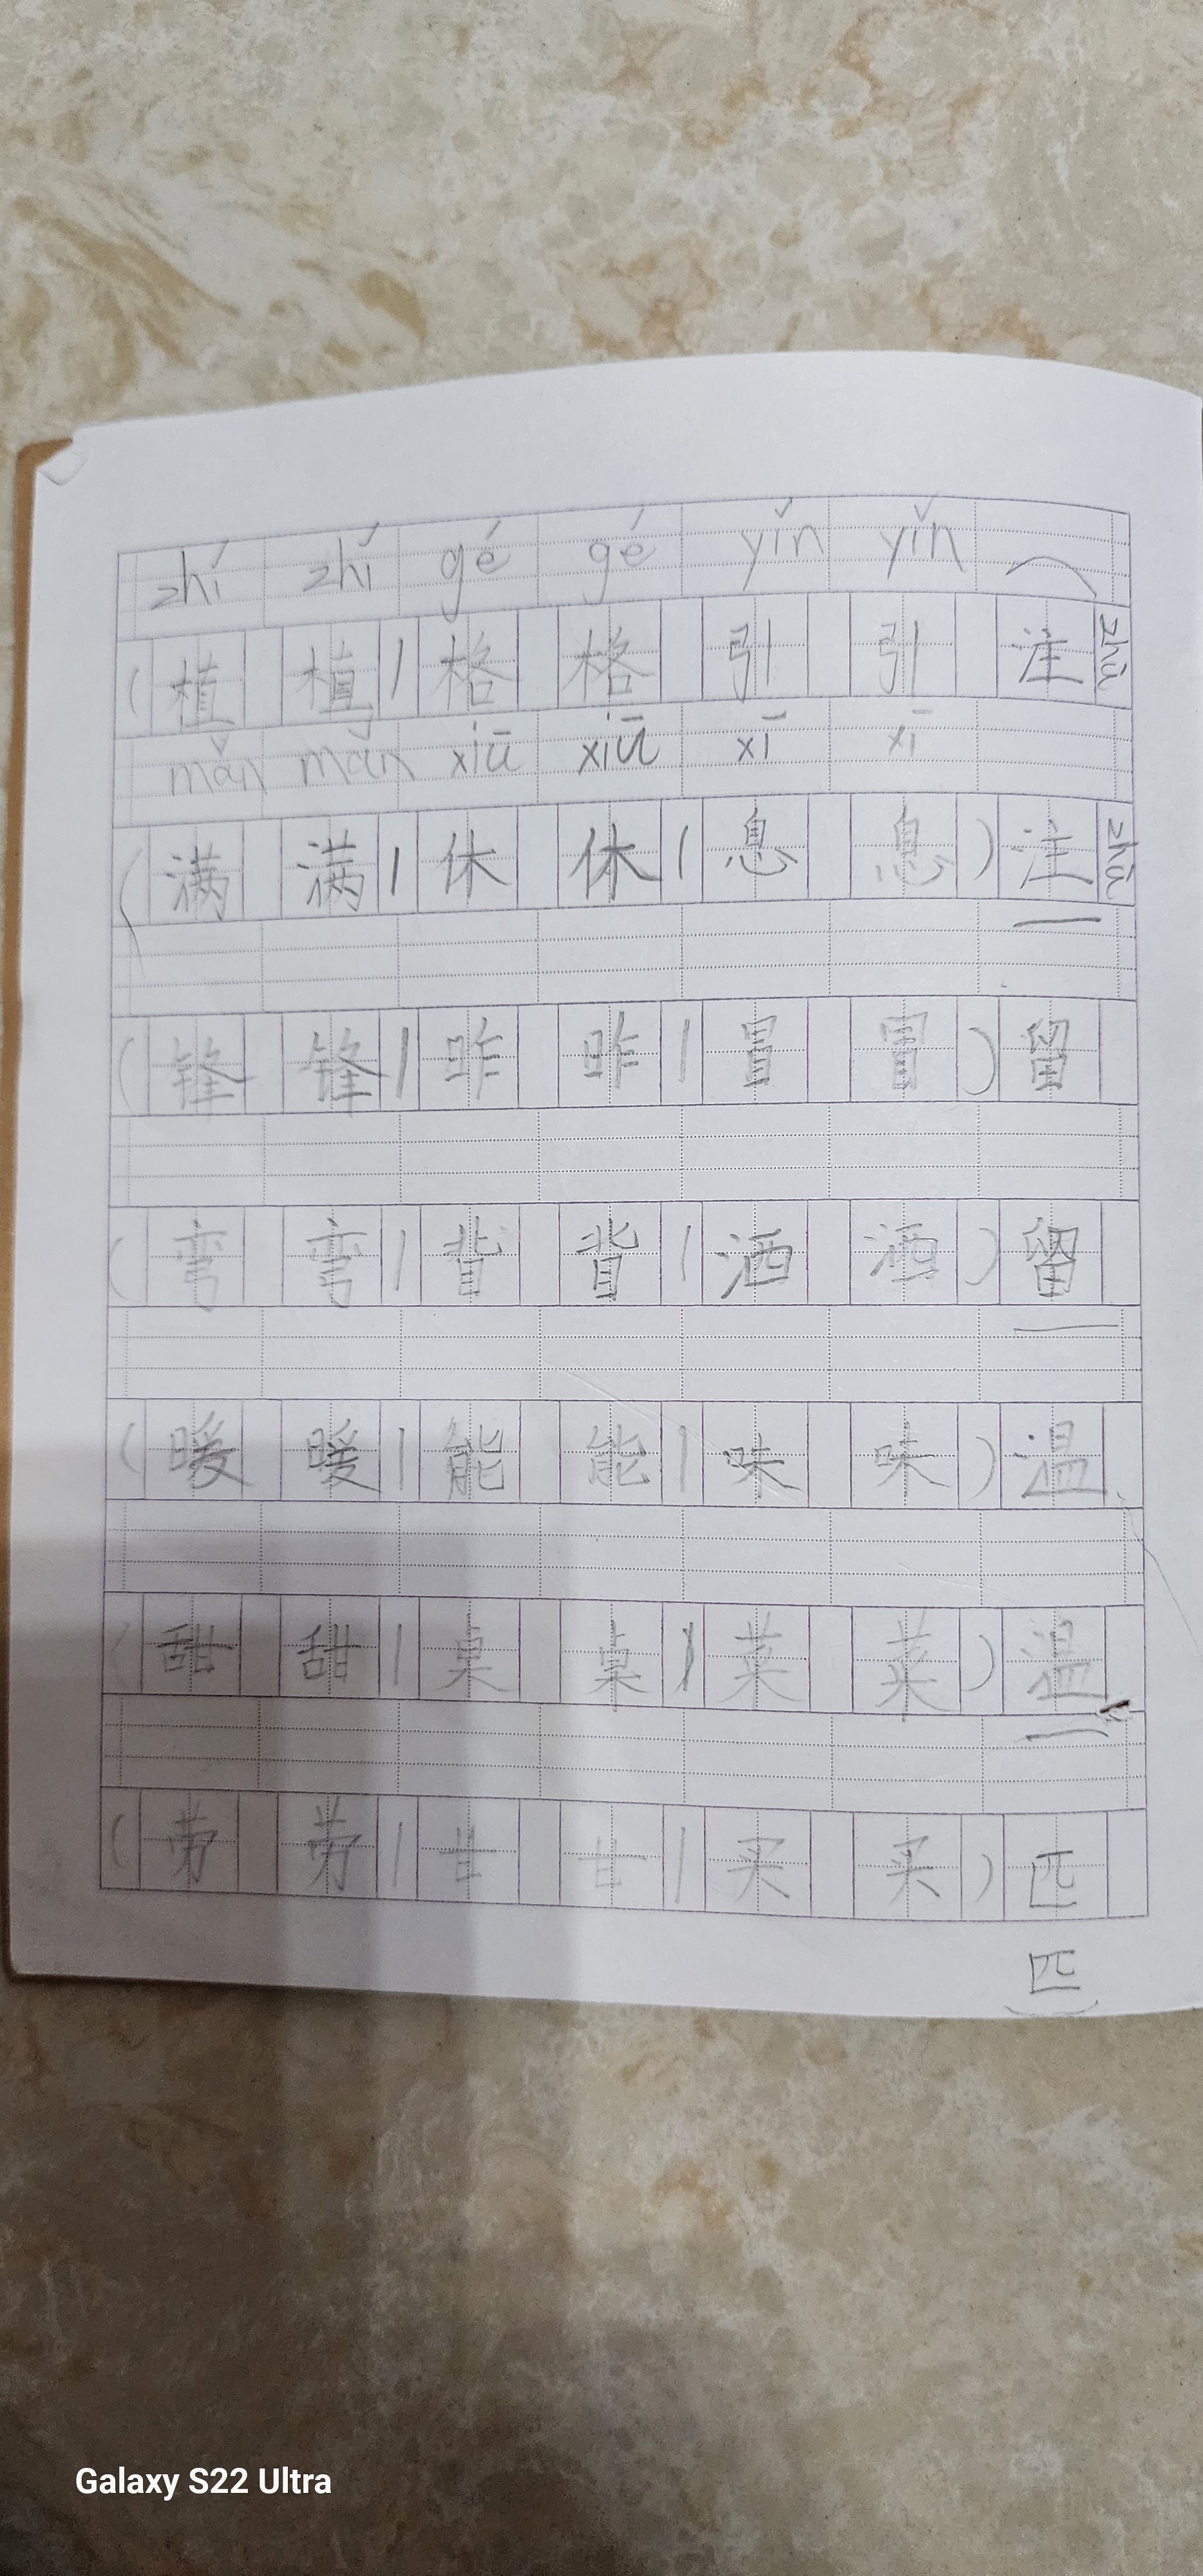 zhí zhí gé gé yǐn yǐn
(植 植 | 格 格 引 引 注 zhù
mǎn mǎn xiū xiū xī xī
(满 满 | 休 休 | 息 息) 注 zhù
(锋 锋 | 昨 昨 | 冒 冒) 留
(弯 弯 | 背 背 | 洒 洒) 留
(暖 暖 | 能 能 | 味 味) 温
(甜 甜 | 桌 桌 | 菜 菜) 温
(劳 劳 | 甘 甘 | 买 买) 匹
匹
Galaxy S22 Ultra